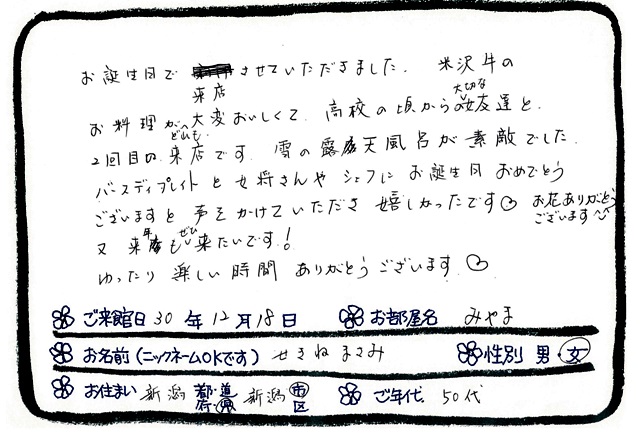 お誕生日で 来店 させていただきました. 米沢牛の
お料理がどれも大変おいしくて、高校の頃から大切な女友達と、
2回目の来店です。雪の露天風呂が素敵でした.
バースディプレイトと女将さんやシェフにお誕生日おめでとう
ございますと声をかけていただき嬉しかったです お花ありがとうございます
又 来年もぜひ来たいです!
ゆったり楽しい時間ありがとうございます.
ご来館日 30 年 12 月 18 日 お部屋名 みやま
お名前(ニックネームOKです) せきねまさみ 性別 男・女
お住まい 新潟 都・道・府・県 新潟 市・区 ご年代 50代